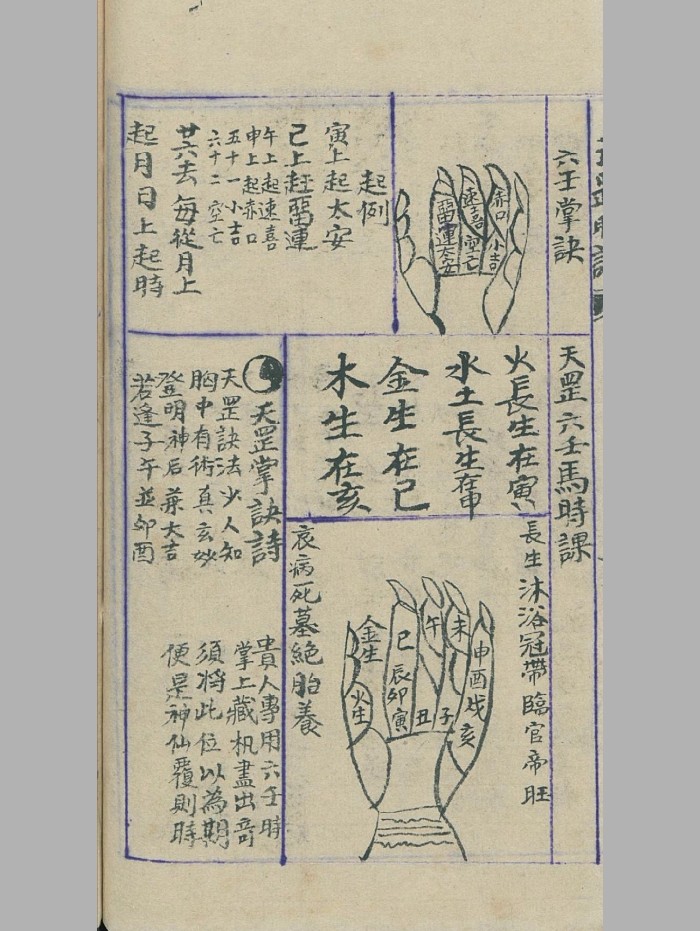 六壬掌訣
赤口
小吉
速喜
空亡
畱連
太安
起例
寅上起太安
巳上赶畱連
午上起速喜
申上起赤口
五十一小吉
六十二空亡
廿六去每從月上
起月日上起時
天罡六壬馬時課
火長生在寅
水土長生在申
金生在巳
木生在亥
長生沐浴冠帶臨官帝旺
衰病死墓絕胎養
申酉戌亥
未
午
巳
辰卯
寅
丑
子
金生
火生
天罡掌訣詩
天罡訣法少人知
胸中有術真玄妙
登明神后兼大吉
若逢子午並卯酉
貴人專用六壬時
掌上藏机盡出奇
須將此位以為期
便是神仙覆則時